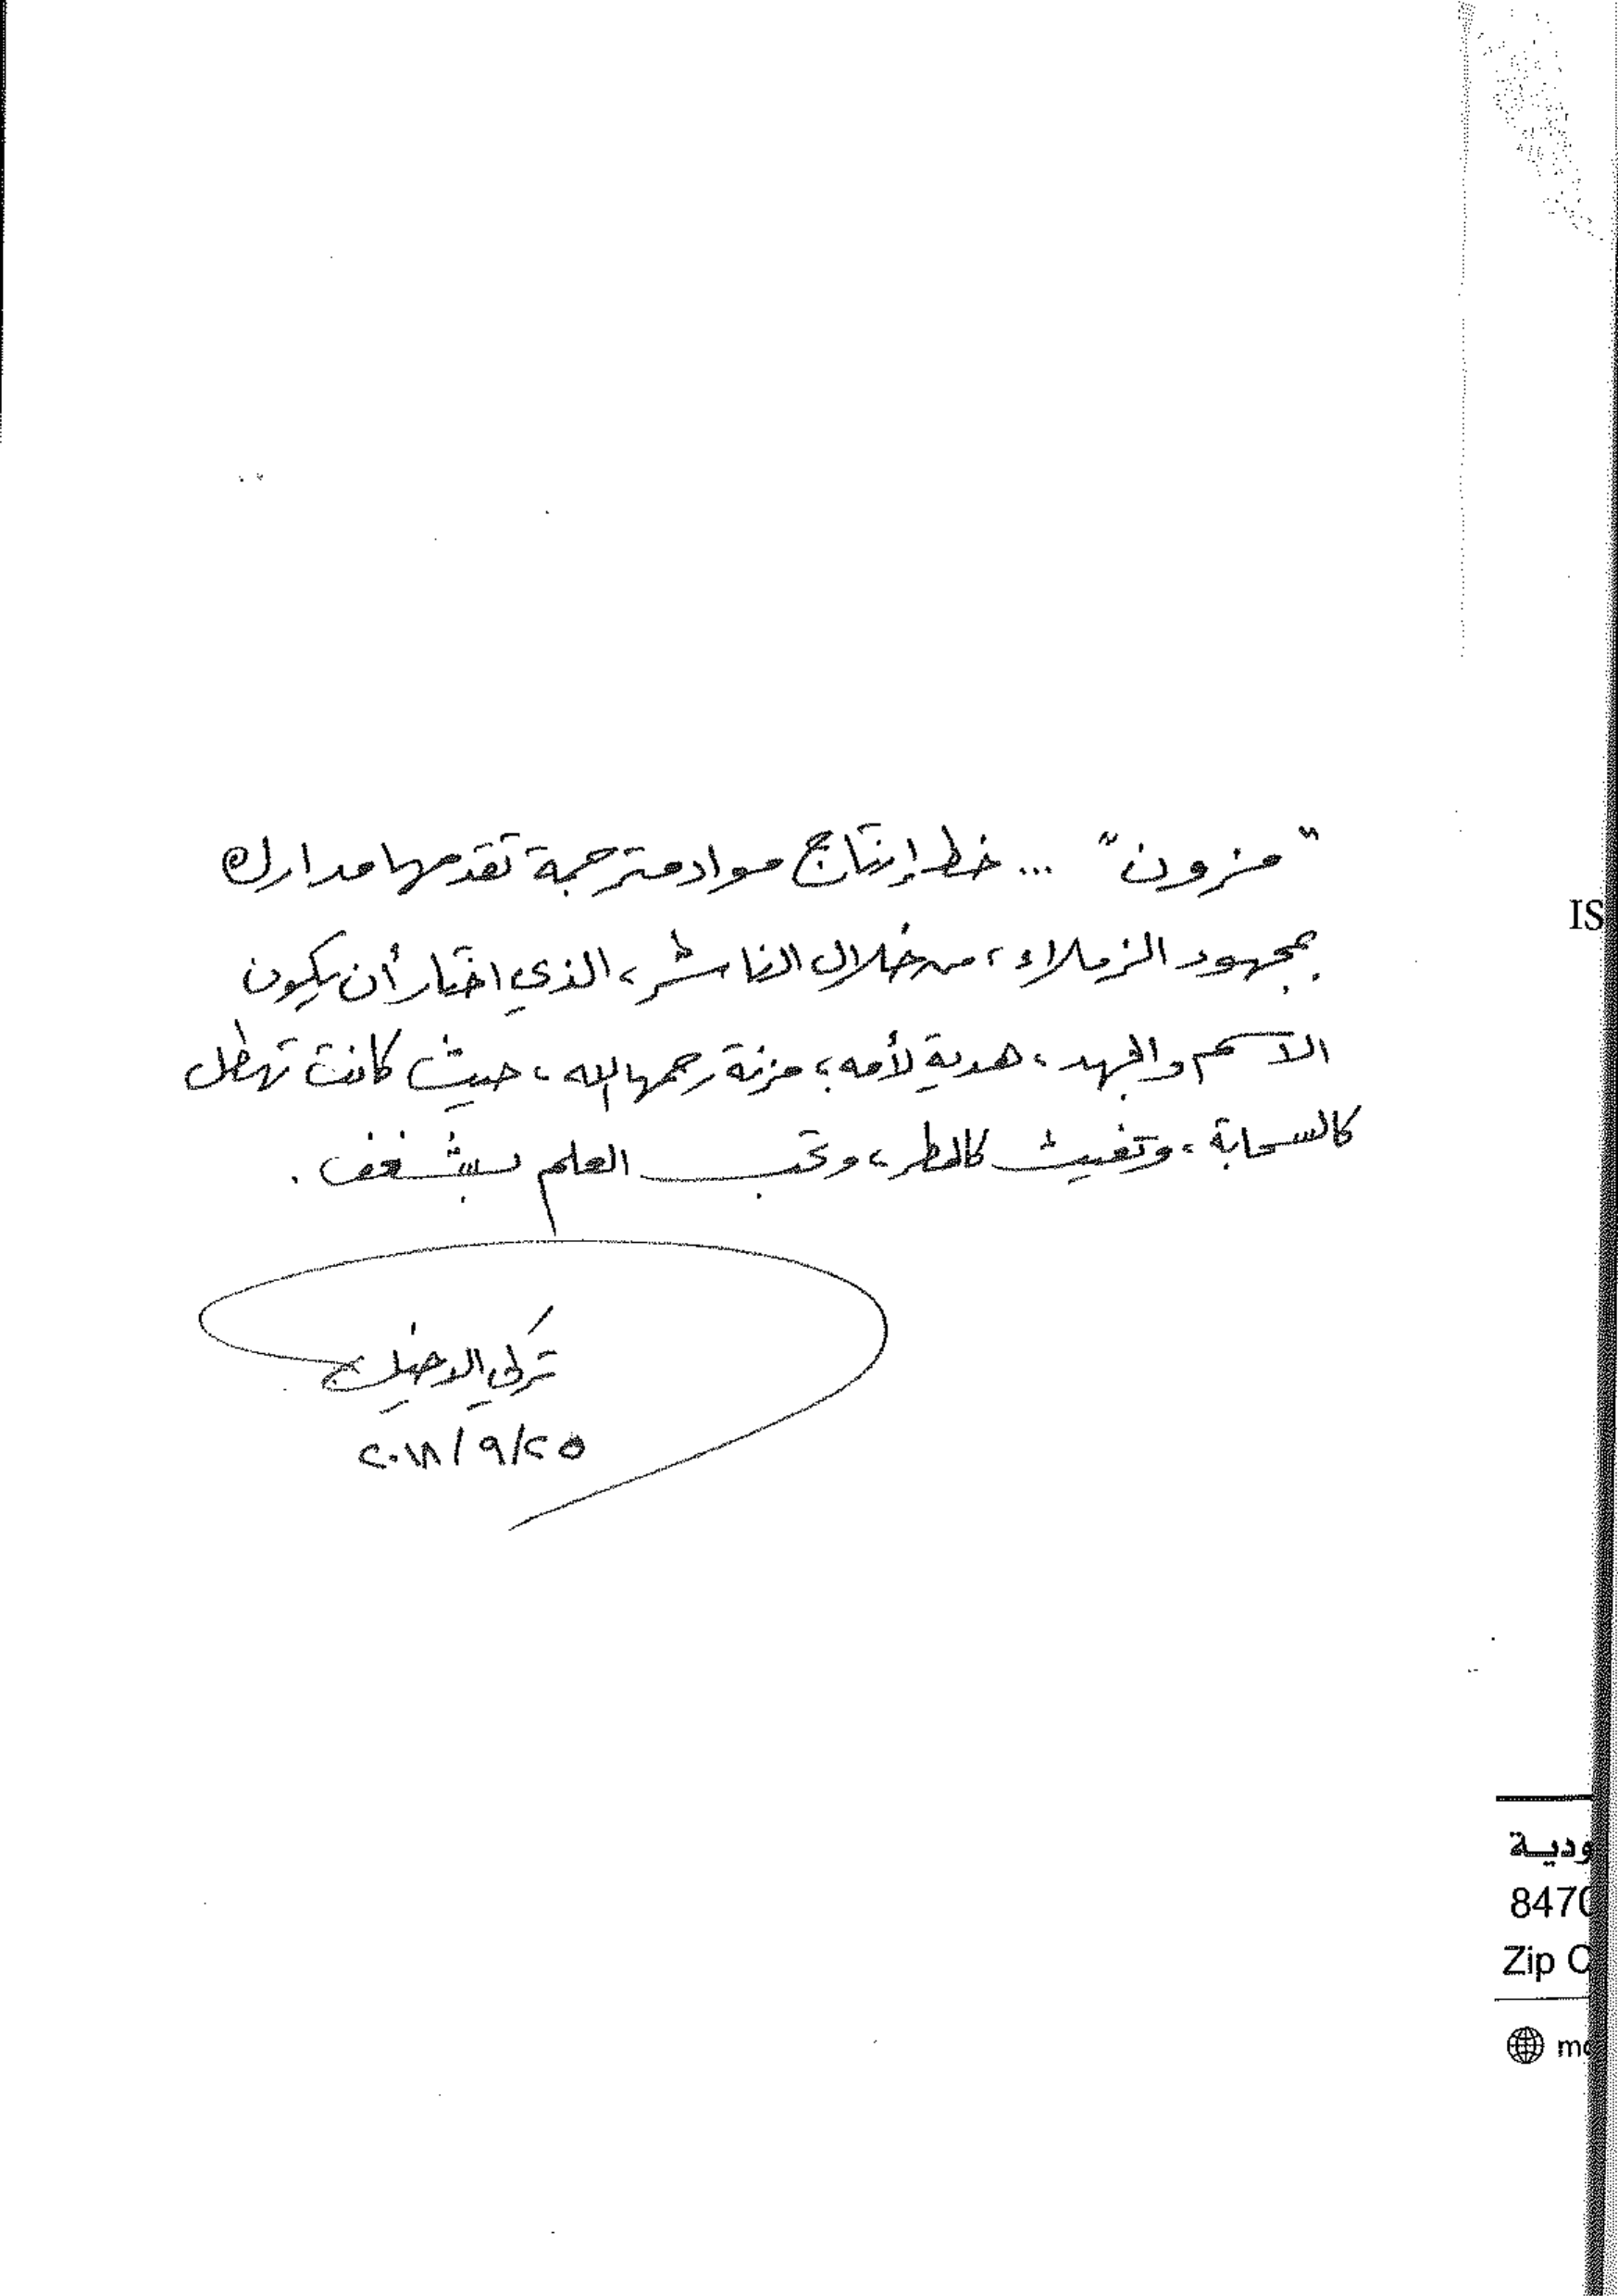 "مزون" ... خط إنتاج مواد مترجمة تقدمها مدارك
بمجهود الزملاء، من خلال الناشر، الذي اختار أن يكون
الاسم والجهد، هدية لأمه؛ مزنة رحمها الله، حيث كانت تهطل
كالسحابة، وتغيث كالمطر، وتحب العلم بشغف.
تركي الدخيل
٢٥/٩/٢٠١٨
IS
ودية
8470
Zip C